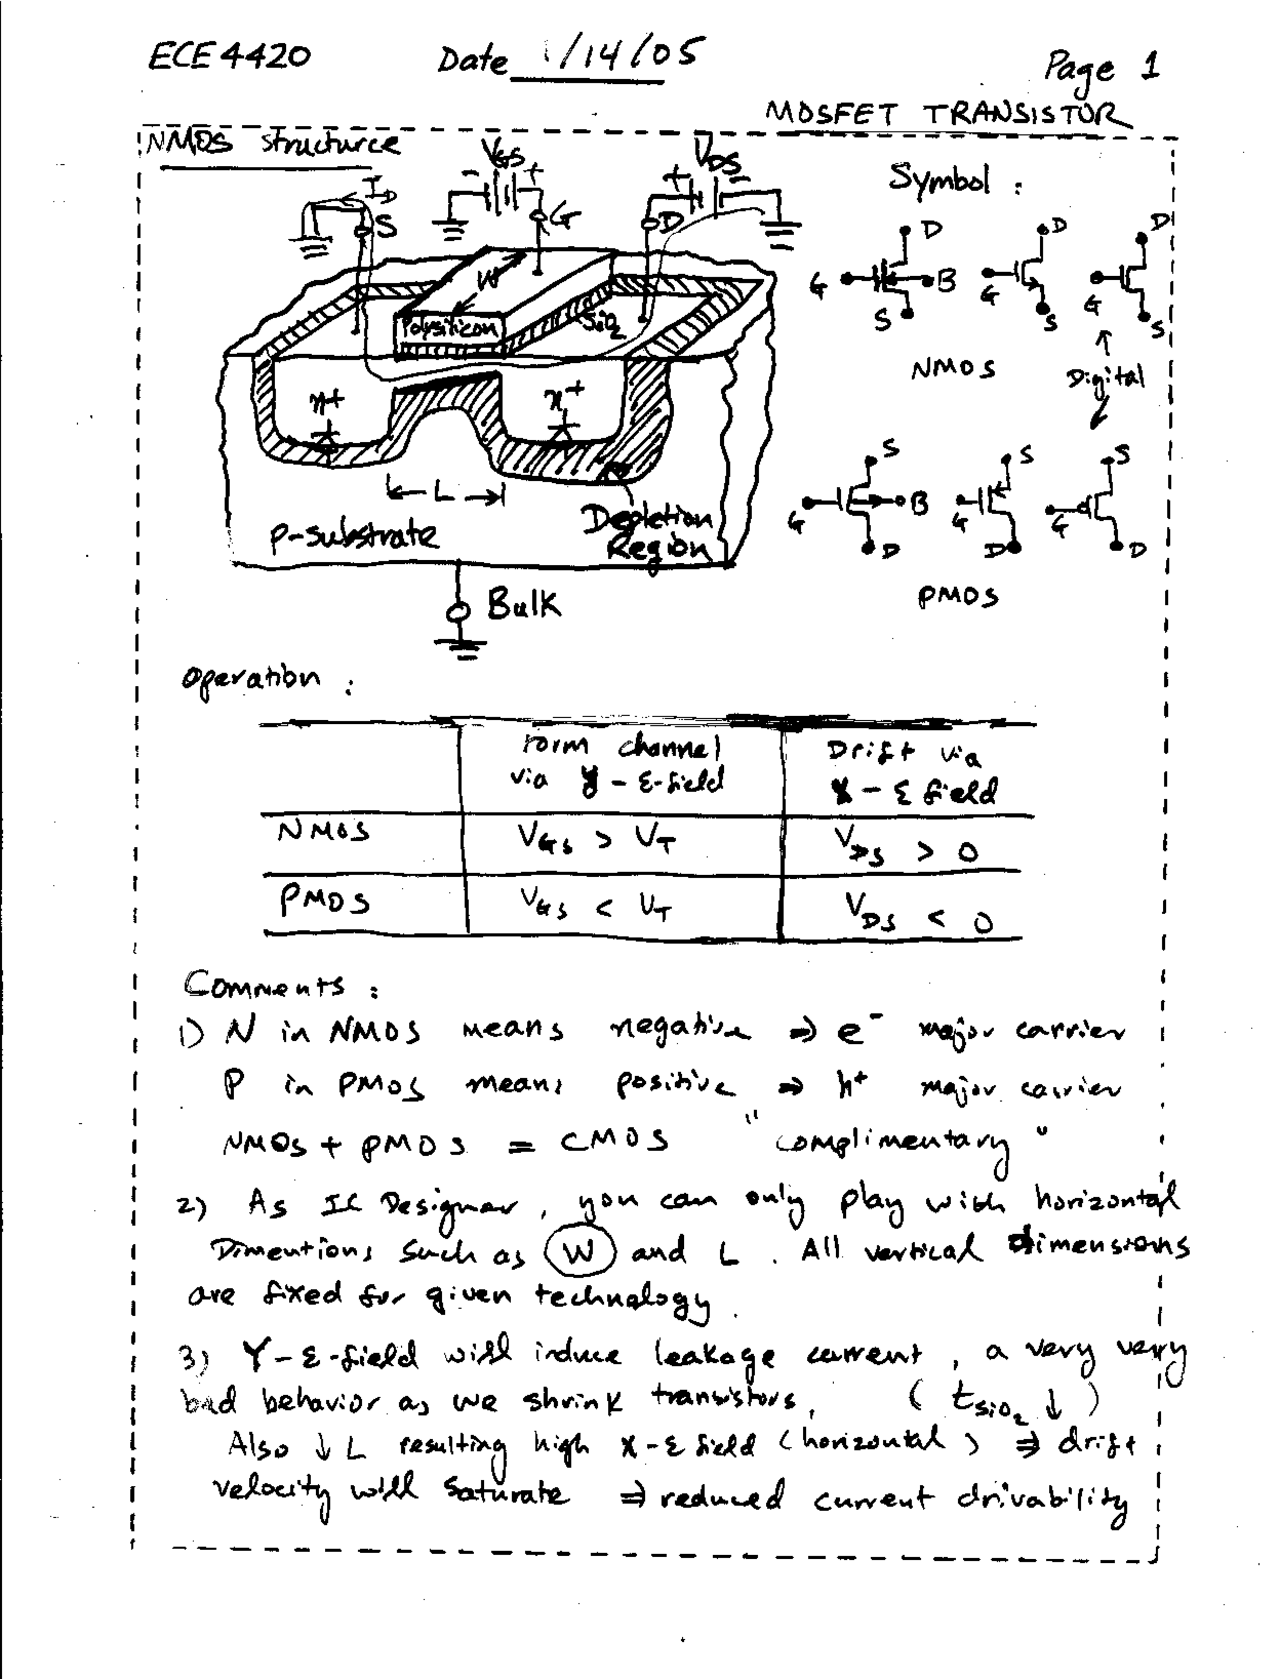 ECE 4420 Date 1/14/05 Page 1
MOSFET TRANSISTOR
NMOS structurce
Symbol :
VGS
VDS
- +
+ -
ID
S
G
D
W
Polysilicon
SiO2
n+
n+
L
p-substrate
Depletion
Region
Bulk
D D D
G B G G
S S S
NMOS
Digital
S S S
G B G G
D D D
PMOS
Operation :
Form channel
via y - ε-field
Drift via
x - ε field
NMOS VGS > VT VDS > 0
PMOS VGS < VT VDS < 0
Comments :
1) N in NMOS means negative ⇒ e⁻ major carrier
P in PMOS means positive ⇒ h⁺ major carrier
NMOS + PMOS = CMOS "complimentary"
2) As IC Designer, you can only play with horizontal
Dimentions such as W and L. All vertical dimensions
are fixed for given technology.
3) Y-ε-field will induce leakage current, a very very
bad behavior as we shrink transistors, (tSiO2 ↓)
Also ↓ L resulting high x-ε field (horizontal) ⇒ drift
velocity will saturate ⇒ reduced current drivability